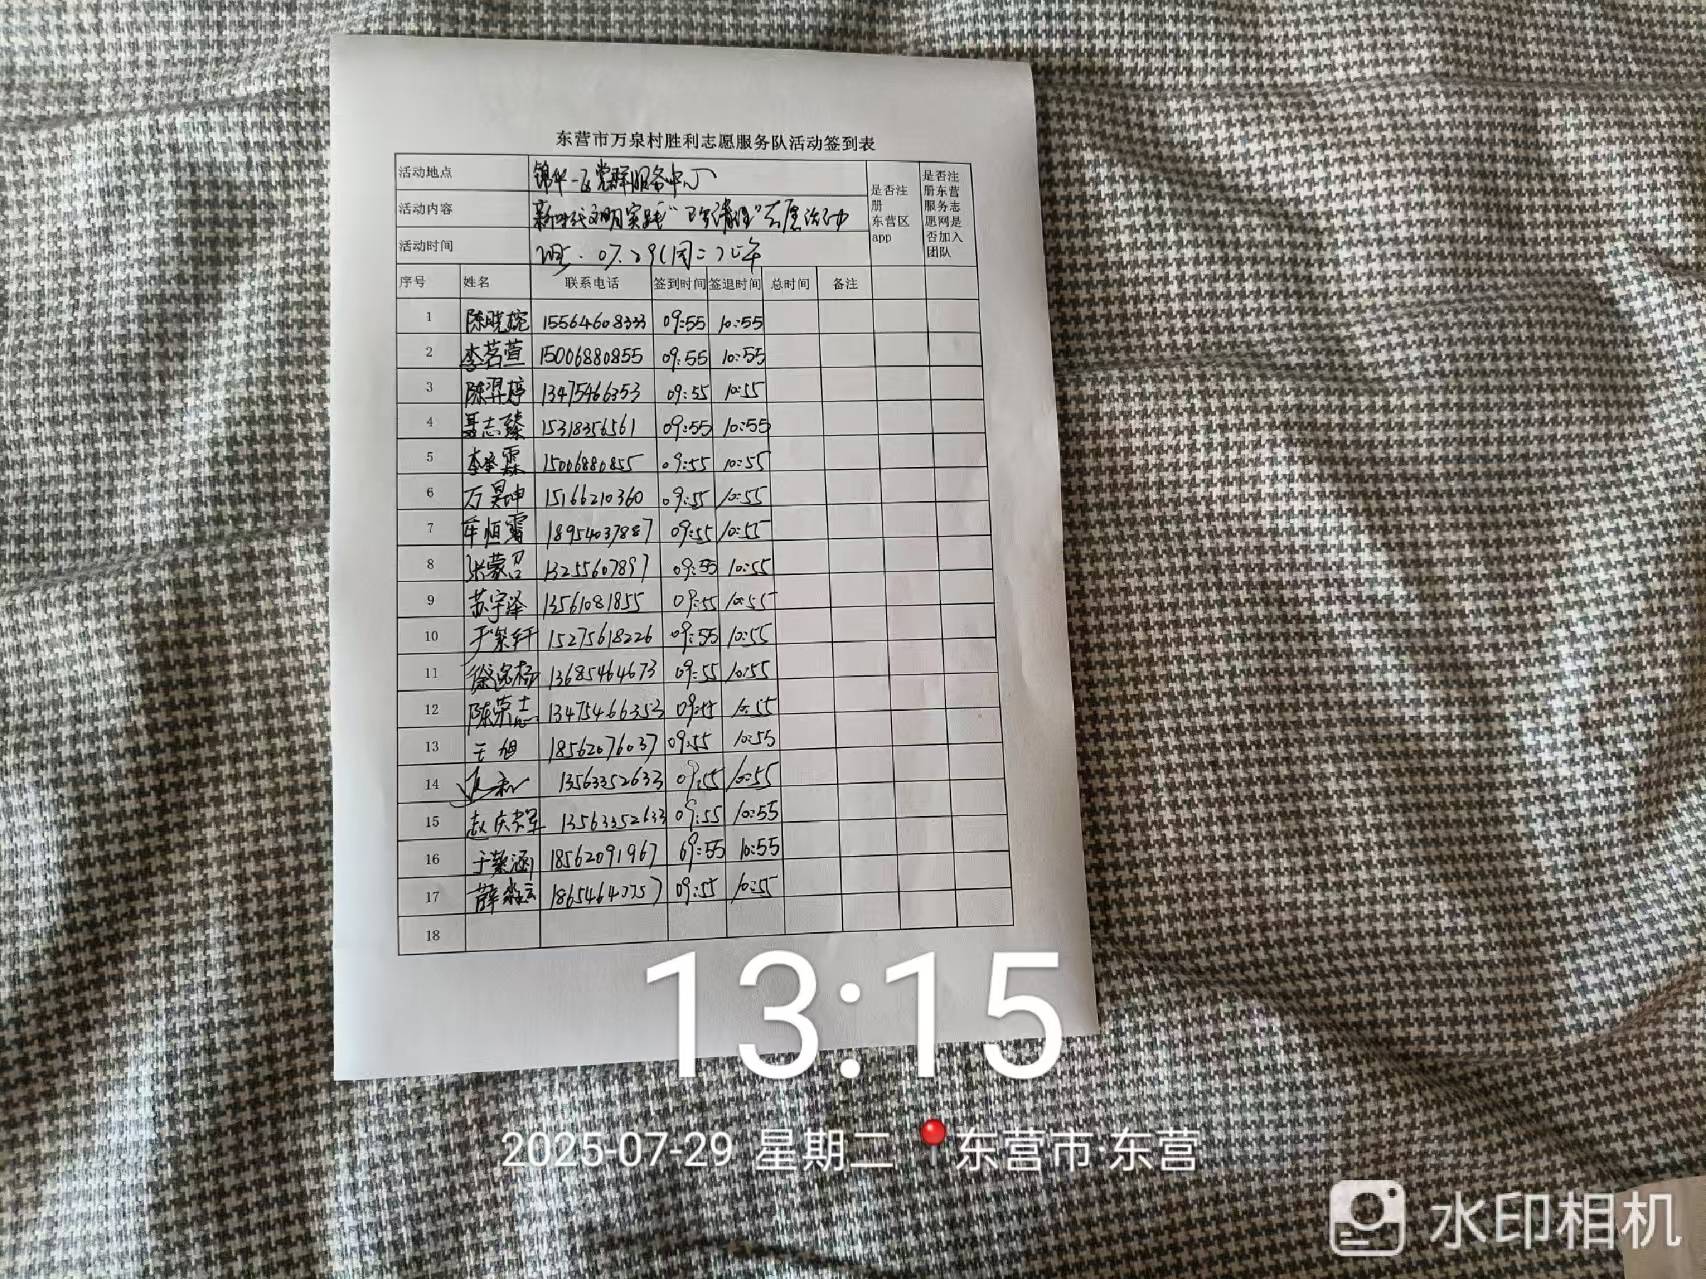 东营市万泉村胜利志愿服务队活动签到表
活动地点 锦华一区党群服务中心 是否注册东营区app 是否注册东营服务志愿网是否加入团队
活动内容 新时代文明实践" "志愿活动
活动时间 2025.07.29(周二)上午
序号 姓名 联系电话 签到时间 签退时间 总时间 备注
1 陈晓 15564608333 09:55 10:55
2 李茗萱 15006880855 09:55 10:55
3 陈羿婷 13475466353 09:55 10:55
4 聂志臻 15318356561 09:55 10:55
5 李 霖 15006880855 09:55 10:55
6 万昊坤 15166210360 09:55 10:55
7 恒霄 18954037887 09:55 10:55
8 张蒙召 13255607897 09:55 10:55
9 苏宇泽 13561081855 09:55 10:55
10 于荣轩 15275618226 09:55 10:55
11 徐逸杨 13685464673 09:55 10:55
12 陈荣志 13475466353 09:55 10:55
13 王旭 18562076037 09:55 10:55
14 13563352633 09:55 10:55
15 赵庆 13563352633 09:55 10:55
16 于荣涵 18562091967 09:55 10:55
17 薛 09:55 10:55
18
13:15
2025-07-29 星期二 东营市·东营
水印相机